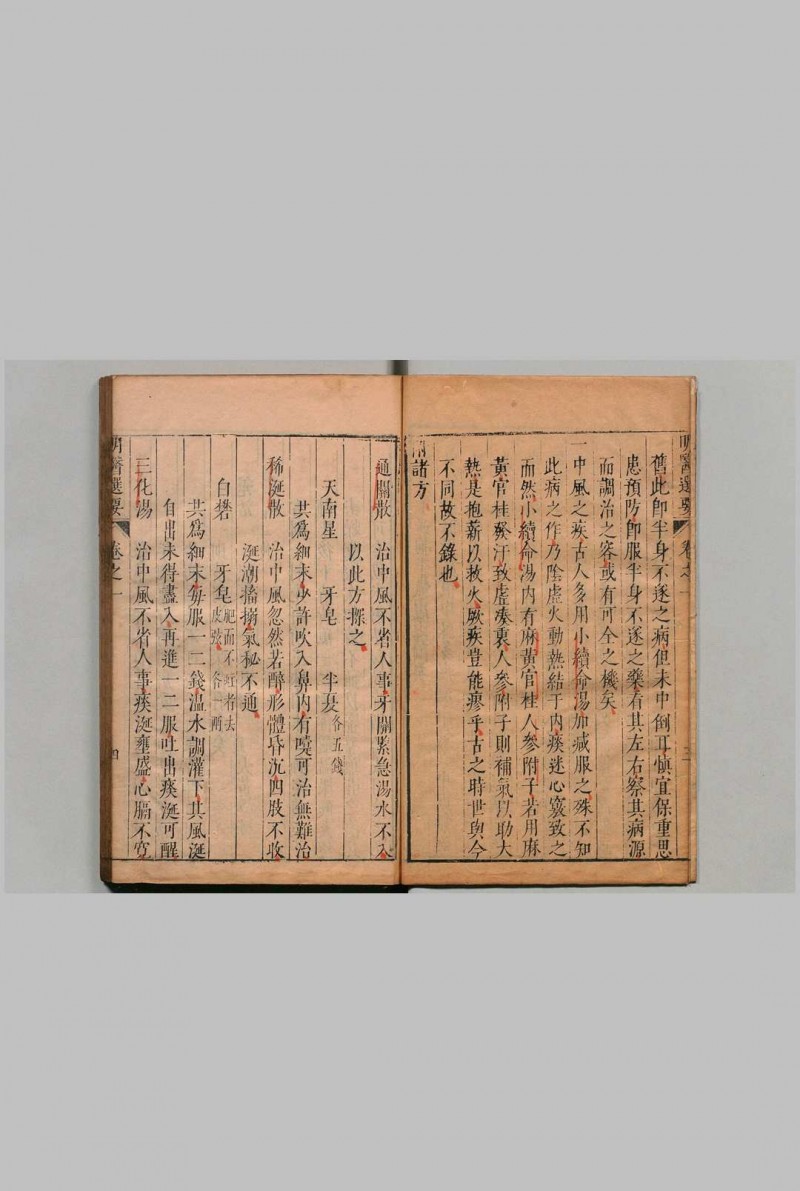 明醫選要 卷之一
舊此卽半身不遂之病但未中倒耳愼宜保重思
患預防卽服半身不遂之藥看其左右察其病源
而調治之容或有可全之機矣
一中風之疾古人多用小續命湯加減服之殊不知
此病之作乃陰虛火動熱結于內痰迷心竅致之
而然小續命湯內有麻黃官桂人參附子若用麻
黃官桂發汗致虛湊裏人參附子則補氣以助大
熱是抱薪以救火厥疾豈能瘳乎古之時世與今
不同故不錄也
諸方
通關散 治中風不省人事牙關緊急湯水不入
以此方探之
天南星 牙皂 半夏各五錢
共爲細末少許吹入鼻內有嚏可治無難治
稀涎散 治中風忽然若醉形體昏沉四肢不收
涎潮搐搦氣秘不通
白礬 牙皂肥而不蛀者去皮弦各一兩
共爲細末每服一二錢溫水調灌下其風涎
自出未得盡入再進一二服吐出痰涎可醒
三化湯 治中風不省人事痰涎壅盛心膈不寬
明醫選要 卷之一 四